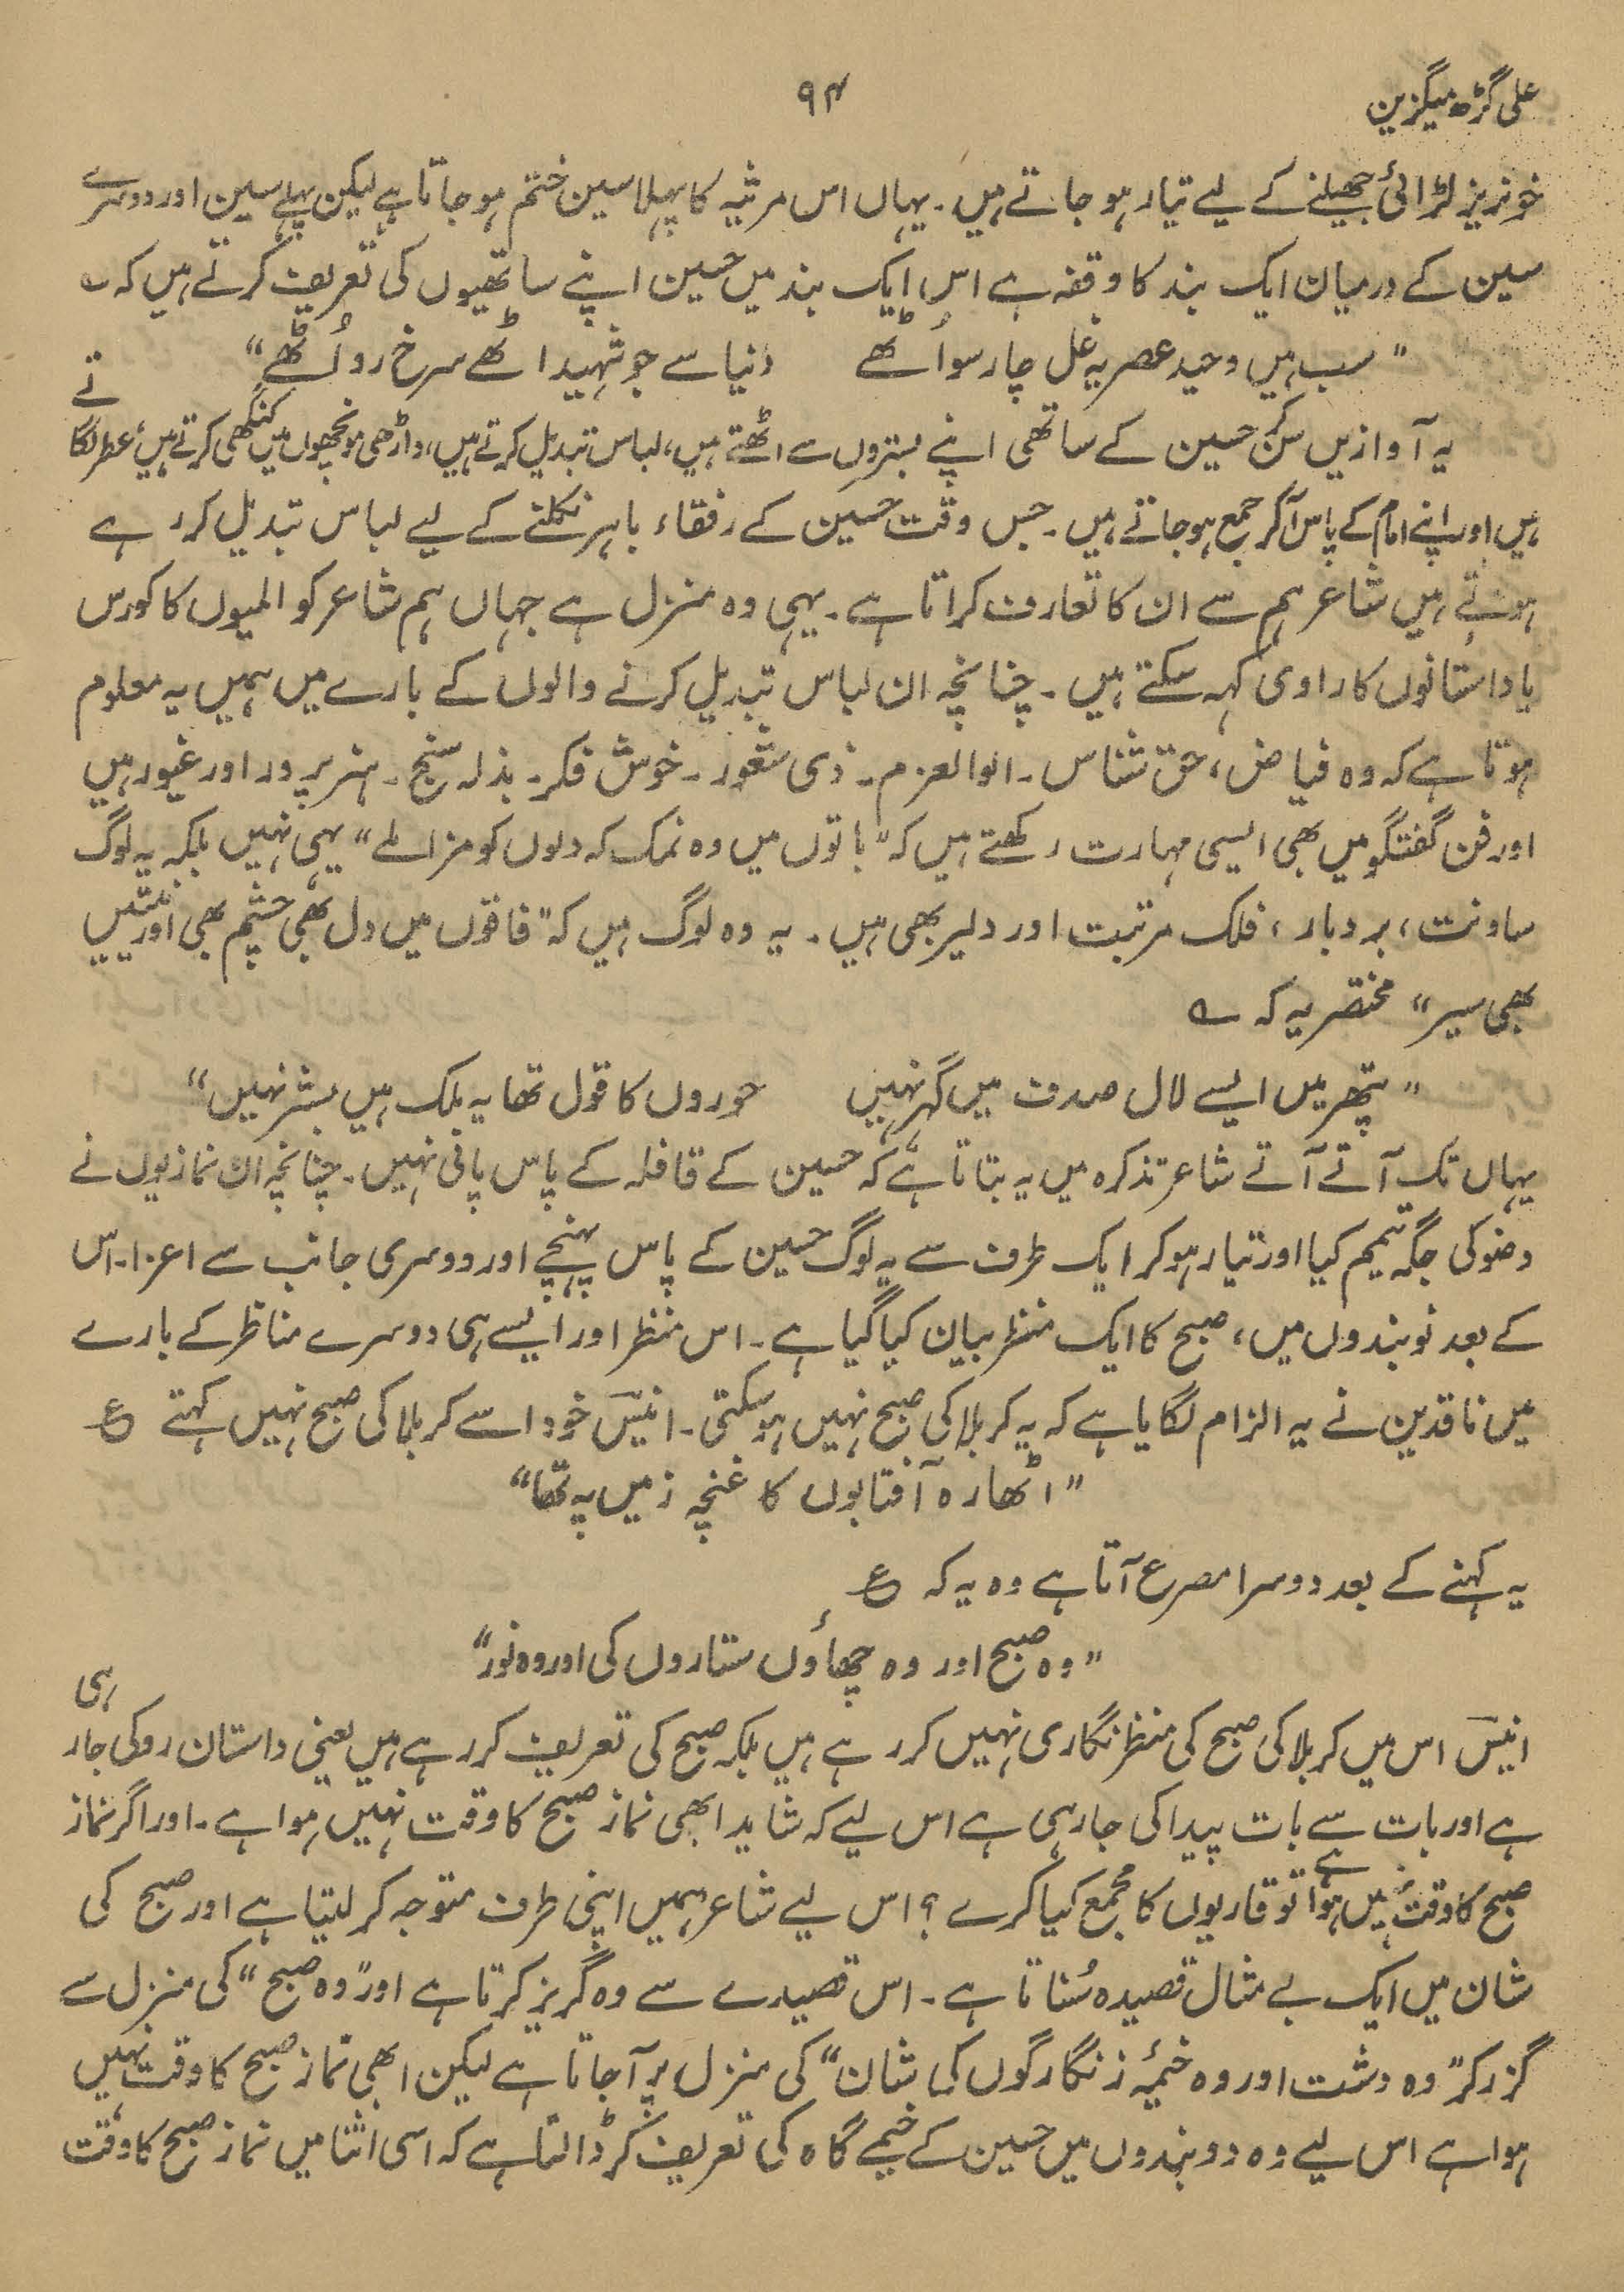 علی گڑھ میگزین
۹۴
خونریز لڑائی جھیلنے کے لیے تیار ہو جاتے ہیں۔ یہاں اس مرثیہ کا پہلا سین ختم ہو جاتا ہے لیکن پہلے سین اور دوسرے
سین کے درمیان ایک بند کا وقفہ ہے اس ایک بند میں حسین اپنے ساتھیوں کی تعریف کرتے ہیں کہ ؎
"سب ہیں وحید عصر یہ غل چار سو اُٹھے دنیا سے جو شہید اٹھے سرخ رو اُٹھے"
یہ آوازیں سن کر حسین کے ساتھی اپنے بستروں سے اٹھتے ہیں، لباس تبدیل کرتے ہیں، داڑھی مونچھوں میں کنگھی کرتے ہیں، عطر لگاتے
ہیں اور اپنے امام کے پاس آ کر جمع ہو جاتے ہیں۔ جس وقت حسین کے رفقاء باہر نکلنے کے لیے لباس تبدیل کر رہے
ہوتے ہیں شاعر ہم سے ان کا تعارف کراتا ہے۔ یہی وہ منزل ہے جہاں ہم شاعر کو المیوں کا کورس
یا داستانوں کا راوی کہہ سکتے ہیں۔ چنانچہ ان لباس تبدیل کرنے والوں کے بارے میں ہمیں یہ معلوم
ہوتا ہے کہ وہ فیاض، حق شناس۔ الوالعزم۔ ذی شعور۔ خوش فکر۔ بذلہ سنج۔ ہنر پرور اور غیور ہیں
اور فن گفتگو میں بھی ایسی مہارت رکھتے ہیں کہ "باتوں میں وہ نمک کہ دلوں کو مزا ملے" یہی نہیں بلکہ یہ لوگ
ساونت، بردبار، فلک مرتبت اور دلیر بھی ہیں۔ یہ وہ لوگ ہیں کہ "فاقوں میں دل بھی چشم بھی اور نیتیں
بھی سیر" مختصر یہ کہ ؎
"پتھر میں ایسے لال صدف میں گہر نہیں حوروں کا قول تھا یہ ملک ہیں بشر نہیں"
یہاں تک آتے آتے شاعر تذکرہ میں یہ بتاتا ہے کہ حسین کے قافلہ کے پاس پانی نہیں۔ چنانچہ ان نمازیوں نے
وضو کی جگہ تیمم کیا اور تیار ہو کر ایک طرف سے یہ لوگ حسین کے پاس پہنچے اور دوسری جانب سے اعزا۔ اس
کے بعد نو بندوں میں، صبح کا ایک منظر بیان کیا گیا ہے۔ اس منظر اور ایسے ہی دوسرے مناظر کے بارے
میں ناقدین نے یہ الزام لگایا ہے کہ یہ کربلا کی صبح نہیں ہو سکتی۔ انیسؔ خود اسے کربلا کی صبح نہیں کہتے ع
"اٹھارہ آفتابوں کا غنچہ زمیں پہ تھا"
یہ کہنے کے بعد دوسرا مصرع آتا ہے وہ یہ کہ ع
"وہ صبح اور وہ چھاؤں ستاروں کی اور وہ نور"
انیسؔ اس میں کربلا کی صبح کی منظر نگاری نہیں کر رہے ہیں بلکہ صبح کی تعریف کر رہے ہیں یعنی داستان روکی جا رہی
ہے اور بات سے بات پیدا کی جا رہی ہے اس لیے کہ شاید ابھی نماز صبح کا وقت نہیں ہوا ہے۔ اور اگر نماز
صبح کا وقت نہیں ہوا ہے تو قاریوں کا مجمع کیا کرے؟ اس لیے شاعر ہمیں اپنی طرف متوجہ کر لیتا ہے اور صبح کی
شان میں ایک بے مثال قصیدہ سُناتا ہے۔ اس قصیدے سے وہ گریز کرتا ہے اور "وہ صبح" کی منزل سے
گزر کر "وہ دشت اور وہ خیمۂ زنگار گوں کی شان" کی منزل پر آ جاتا ہے لیکن ابھی نماز صبح کا وقت نہیں
ہوا ہے اس لیے وہ دو بندوں میں حسین کے خیمے گاہ کی تعریف کر ڈالتا ہے کہ اسی اثنا میں نماز صبح کا وقت